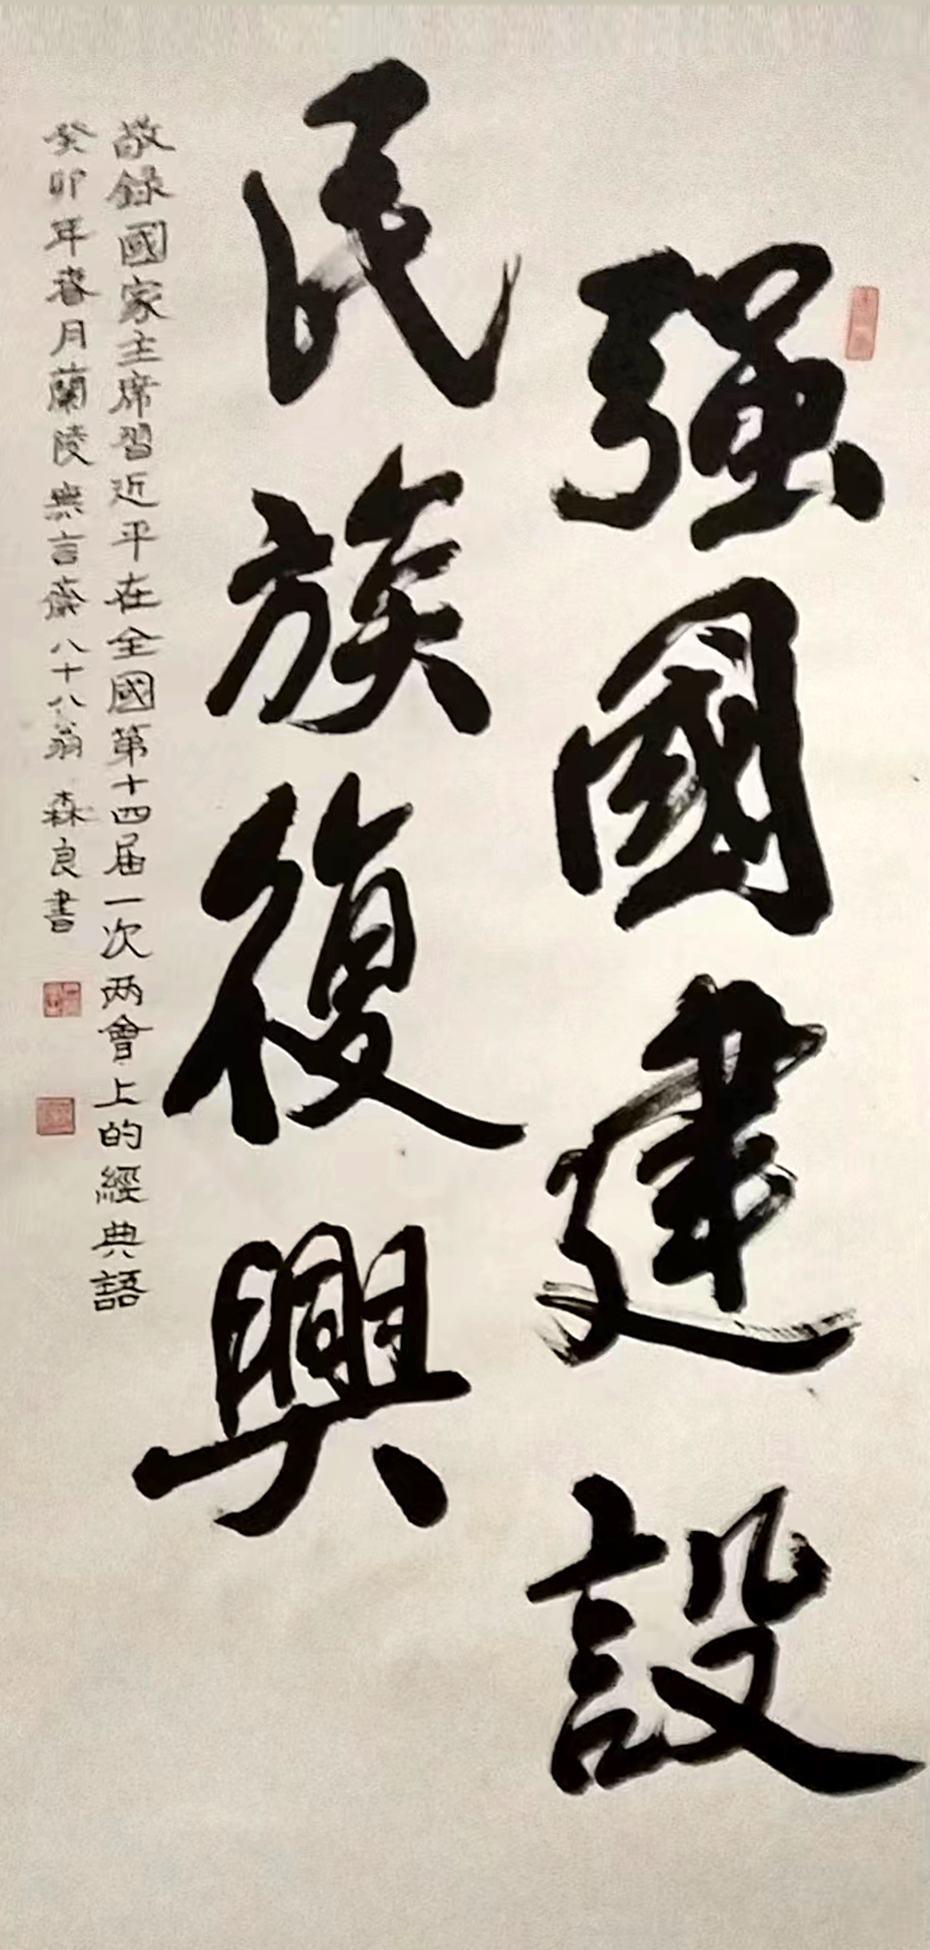 强國建設
民族復興
敬録國家主席習近平在全國第十四届一次两會上的經典語
癸卯年春月蘭陵無言齋八十八翁 森良書